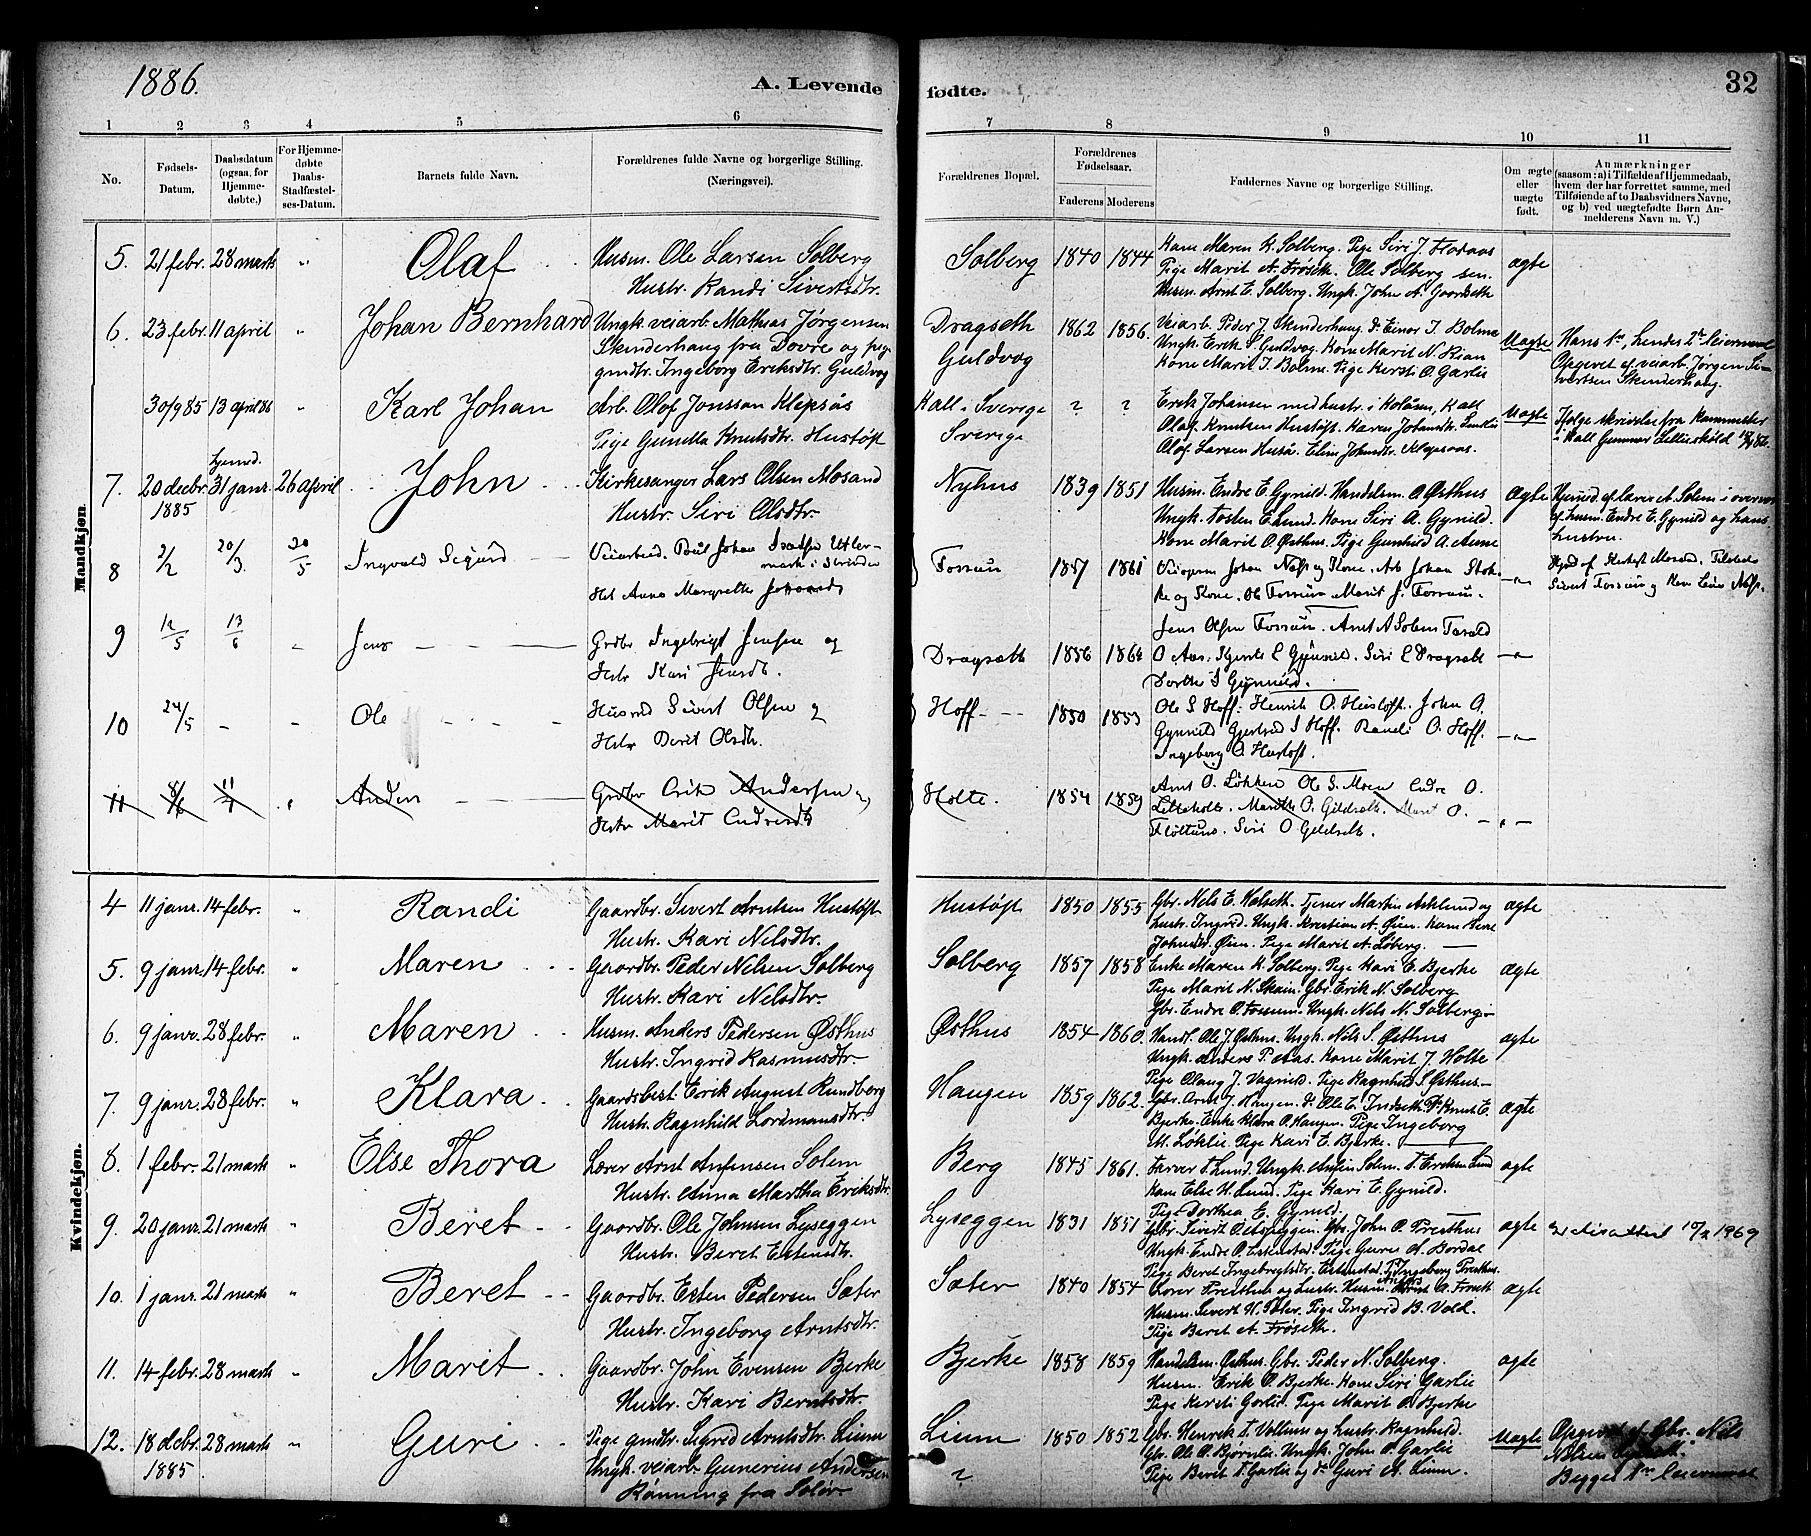 1886.
A. Levende
fødte.
32
1 2 3 4 5 6 7 8 9 10 11
No.
Fødsels-
Datum.
Daabsdatum
(ogsaa, for
Hjemme-
døbte.)
For Hjemme-
døbte
Daabs-
Stadfæstel-
ses-Datum.
Barnets fulde Navn.
Forældrenes fulde Navne og borgerlige Stilling.
(Næringsvei).
Forældrenes Bopæl.
Forældrenes
Fødselsaar.
Faderens Moderens
Faddernes Navne og borgerlige Stilling.
Om ægte
eller
uægte
født.
Anmærkninger
(saasom: a) i Tilfælde af Hjemmedaab,
hvem der har forrettet samme, med
Tilføiende af to Daabsvidners Navne,
og b) ved uægtefødte Børn An-
melderens Navn m. V.)
Mandkjøn.
5. 21 febr. 28 marts " Olaf Husm. Ole Larsen Solberg Solberg 1840 1844 Kone Maren K. Solberg. Pige Siri J. ægte
Hustr. Randi Sivertsdtr. Pige Marit A. Frøseth. Ole Solberg sen.
Husm. Arnt E. Solberg. Ungk. John A.
6. 23 febr. 11 april " Johan Bernhard Ungk. veiarb. Mathias Jørgensen Dragseth 1862 1856. Veiarb. Peder J. Skinderhaug. Do Einar I. Bolme Uagte
Skinderhaug fra Dovre og pige Guldvog Ungk. Erik S. Guldvog. Kone Marit N. Rian
gmdtr. Ingeborg Eriksdtr. Guldvog Kone Marit I. Bolme. Pige Kersti O. Garlie
Hans 1ste, hendes 2det Leiermaal
Opgivet af veiarb. Jørgen Si-
vertsen Skinderhaug.
30/9 85 13 april 86 " Karl Johan Arb. Olof Jonsson Klepsås Kall i Sverige ? ? Erik Johansen med hustr. i Kolåsen, Kall Uagte
Pige Gunilla Knutsdtr. Hustøft Sverige Olaf Knutsen Hustøft. Karen
Olof Larsen Huså. Elin Klepsaas.
Ifølge skrivelse fra
i Kall Gunnar
7. 20 decbr. hjemd. 31 janr. 26 april John Kirkesanger Lars Olsen Mosand Nyhus 1839 1851 Husm. Endre E. Gynild. Handelsm. O. Østhus ægte
1885 Hustr. Siri Olsdtr. Ungk. Tosten E. Lund. Kone Siri A. Gynild.
Kone Marit O. Østhus. Pige Gunhild A. Aune
Hjemd. af lærer A. Solem i overvær
af husm. Endre E. Gynild og hans
hustru.
8 2/2 20/3 30/5 Ingvald Sigurd Veiarbeid. Poul Johan Utler- Fossum 1857 1861 Johan Næss og Kone. Arb. Johan Stok- "
mark i Strinden ke og Kone. Ole Fossum. Marit J. Fossum.
Hst Anna Margrethe
Hjd af Kirkes. Mosand.
Sivert Fossum og Kone Næss.
9 12/5 13/6 " Jens Grdbr. Ingebrigt Jensen og Dragsett 1856 1864 Jens Olsen Fossum. Arnt A Solem Tarald "
Hstr Kari O Aas. E Gynnild. Siri E Dragsett
Dorthe S Gynnild.
10 24/5 " " Ole Husmd Sivert Olsen og Hoff 1850 1853 Ole S Hoff. Henrik O. Hustoft. John O. "
Hstr Berit Olsdtr. Gynnild Gjertrud S Hoff. Randi O. Hoff.
Ingeborg O. Hustoft.
11 8/6 11/7 " Anders Grdbr Erik Andersen og Holte. 1854 1859 Arnt O. Løkken Ole S. Moen Endre O. "
Hstr Marit Endresdtr Litleholte. Marith O. Gildset. Marit O.
Siri O Gildset.
Kvindekjøn.
4 11 janr. 14 febr. " Randi Gaardbr. Sivert Arntsen Hustøft Hustøft 1850 1855 Gbr. Nils E. Halseth. Tjener Martin Asklund og ægte
Hustr. Kari Nilsdtr. hustr. Ingrid. Ungk. Kristian A. Øien. Kone Kari
Johnsdtr. Øien. Pige Marit A. Løberg.
5. 9 janr. 14 febr. " Maren Gaardbr. Peder Nilsen Solberg Solberg 1857 1858 Enke Maren K. Solberg. Pige Kari E. Bjerke ægte
Hustr. Kari Nilsdtr. Pige Marit N. Skain. Gbr. Erik N. Solberg
Gbr. Endre O. Fossum. Ungk. Nils N. Solberg
6. 9 janr. 28 febr. " Maren Husm. Anders Pedersen Østhus Østhus 1854 1860. Handl. Ole J. Østhus. Ungk. Nils S. Østhus ægte
Hustr. Ingrid Rasmusdtr. Ungk. Anders P. Aas. Kone Marit J. Holte
Pige Olaug J. Vagnild. Pige Ragnhild S. Østhus
7. 9 janr. 28 febr. " Klara Gaardsbest. Erik August Rundberg Haugen 1859 1862. Gbr. Arnt J. Haugen. Do Ole E. Indseth. Do Knut E. ægte
Hustr. Ragnhild Lordmansdtr. Bjerke. Enke Klara O. Haugen. Pige Ingeborg
M. Løklie. Pige Kari E. Bjerke.
8. 1 febr. 21 marts " Else Thora Lærer Arnt Anfinsen Solem Berg 1845 1861. Farver T. Lund. Ungk. Anfin Solem. T. Eriksen Lund ægte
Hustr. Anna Martha Eriksdtr. Kone Else H. Lund. Pige Kari E. Gynild.
Pige Dorthea E. Gynild.
9. 20 janr. 21 marts " Beret Gaardbr. Ole Johnsen Lyseggen Lyseggen 1831 1851 Gbr. Sivert Gbr. John O. Presthus ægte
Hustr. Beret Estensdtr. Ungk. Endre O. Estenstad. Pige Guru A. Bordal
Pige Beret Ingebrigtsdtr. Estenstad. Pige Ingeborg Presthus.
1969
10. 1 janr. 21 marts " Beret Gaardbr. Esten Pedersen Sæter Sæter 1840 1854 Presthus og hustr. ægte
Hustr. Ingeborg Arntsdtr. Husm. Sivert H. Sæter. Pige Ingrid B. Vold.
Pige Beret A. Frøseth.
11. 14 febr. 28 marts " Marit Gaardbr. John Evensen Bjerke Bjerke 1858 1859 Handelsm. Østhus. Gbr. Peder N. Solberg. ægte
Hustr. Kari Berntsdtr. Husm. Erik O. Bjerke. Kone Siri Garlie
Pige Kersti Garlie. Pige Marit O. Bjerke
12. 18 decbr. 28 marts " Guri Pige gmdtr. Sigrid Arntsdtr. Lium Lium 1850 1852 Gbr. Henrik T. Vollum og hustr. Ragnhild. Uagte
1885. Ungk. veiarb. Gunerius Andersen ? Gbr. Ole O. Bjørnlie. Ungk. John O. Garlie
Rønning fra Solør. Pige Beret T. Garlie og do Guri A. Lium.
Opgivet af Gbr. Nils
Nilsen
Begges 1ste Leiermaal